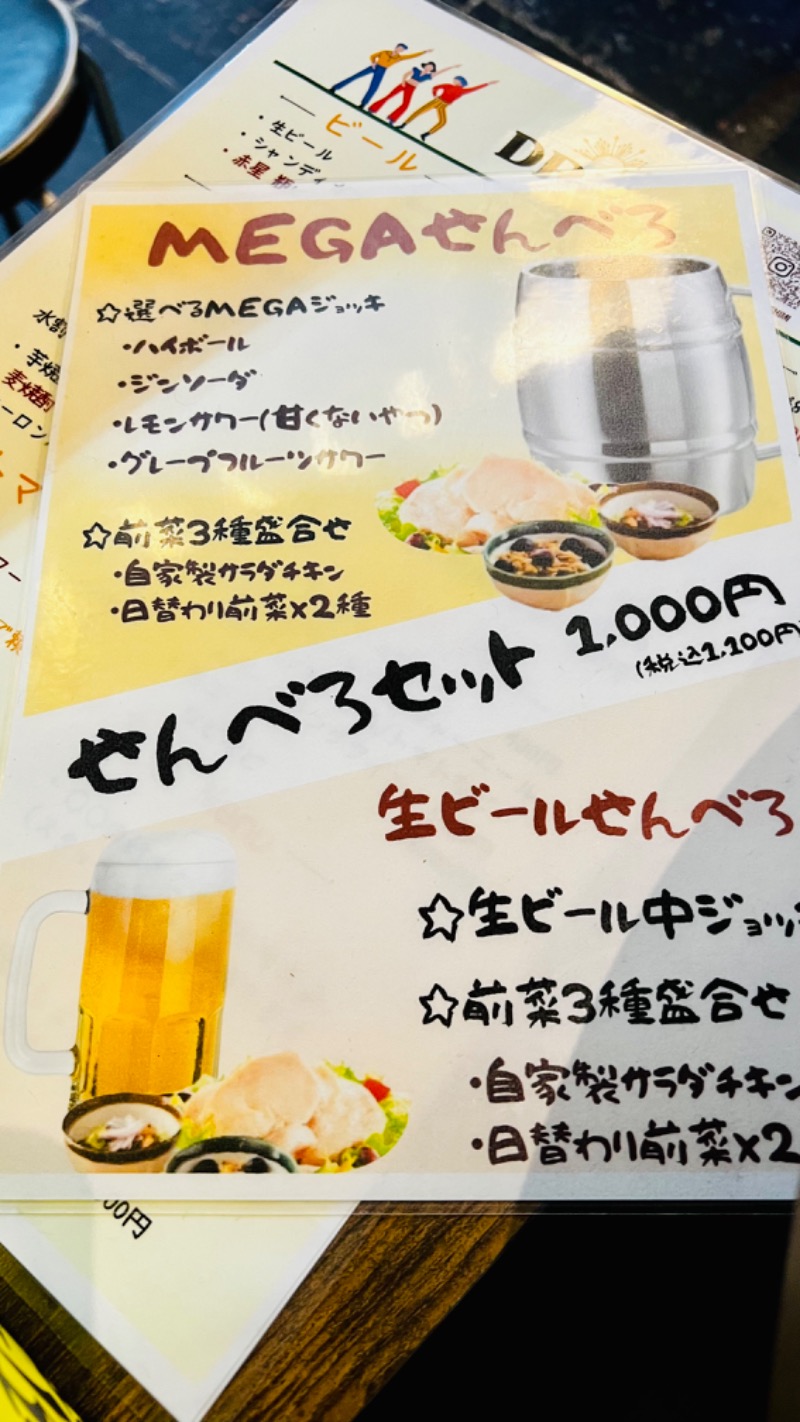 ビール
・生ビール
・シャンディ
・赤星
DE
水割
・芋焼
麦焼酎
ーロン
MEGAせんべろ
☆選べるMEGAジョッキ
・ハイボール
・ジンソーダ
・レモンサワー(甘くないやつ)
・グレープフルーツサワー
☆前菜3種盛合せ
・自家製サラダチキン
・日替わり前菜×2種
せんべろセット 1,000円
(税込1,100円)
生ビールせんべろ
☆生ビール中ジョッキ
☆前菜3種盛合せ
・自家製サラダチキン
・日替わり前菜×2
00円